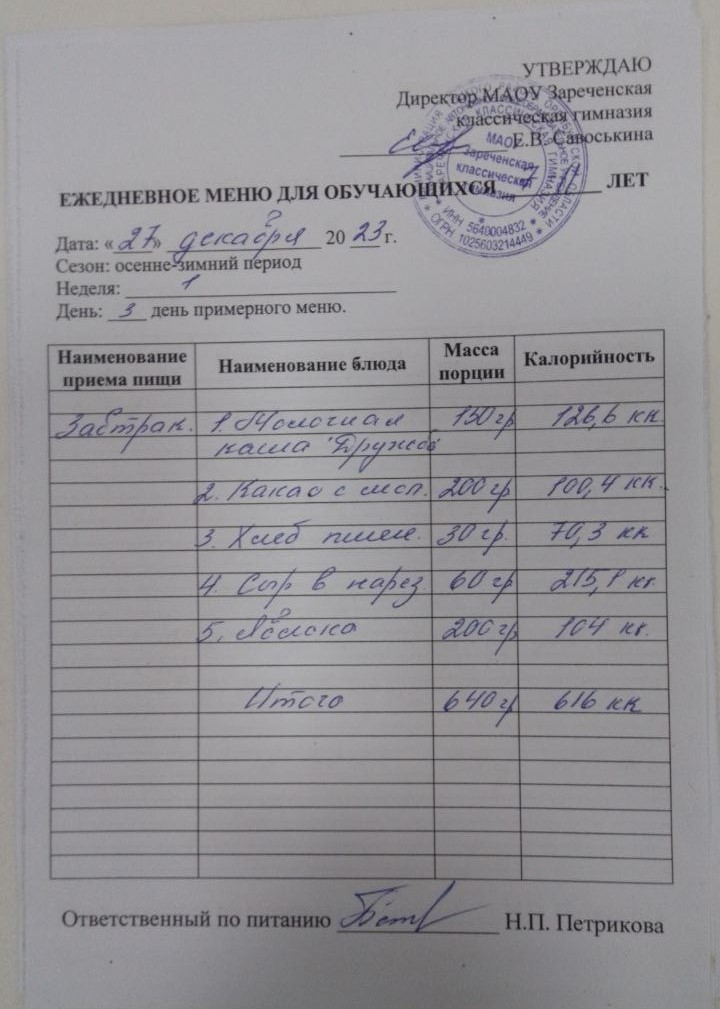 УТВЕРЖДАЮ
Директор МАОУ Зареченская
классическая гимназия
Е.В. Савоськина
МАОУ
Зареченская
классическая
гимназия
ИНН 5640004832
ОГРН 1025603214449
ЕЖЕДНЕВНОЕ МЕНЮ ДЛЯ ОБУЧАЮЩИХСЯ ЛЕТ
Дата: «27» декабря 2023 г.
Сезон: осенне-зимний период
Неделя: 1
День: 3 день примерного меню.
Наименование приема пищи Наименование блюда Масса порции Калорийность
Завтрак. 1. Молочная 150 гр 126,6 кк.
каша "Дружба
2. Какао с мол. 200 гр 100,4 кк.
3. Хлеб пшен. 30 гр. 70,3 кк
4. Сыр в нарез. 60 гр 215,1 кк.
5. Яблока 200 гр 104 кк.
Итого 640 гр 616 кк
Ответственный по питанию Н.П. Петрикова